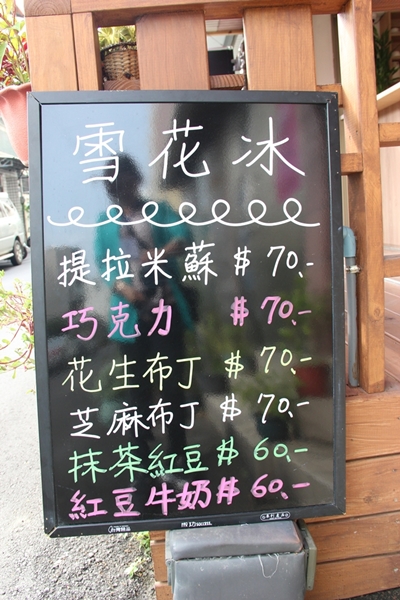 雪花冰
提拉米蘇 $ 70.-
巧克力 $ 70.-
花生布丁 $ 70.-
芝麻布丁 $ 70.-
抹茶紅豆 $ 60.-
紅豆牛奶 $ 60.-